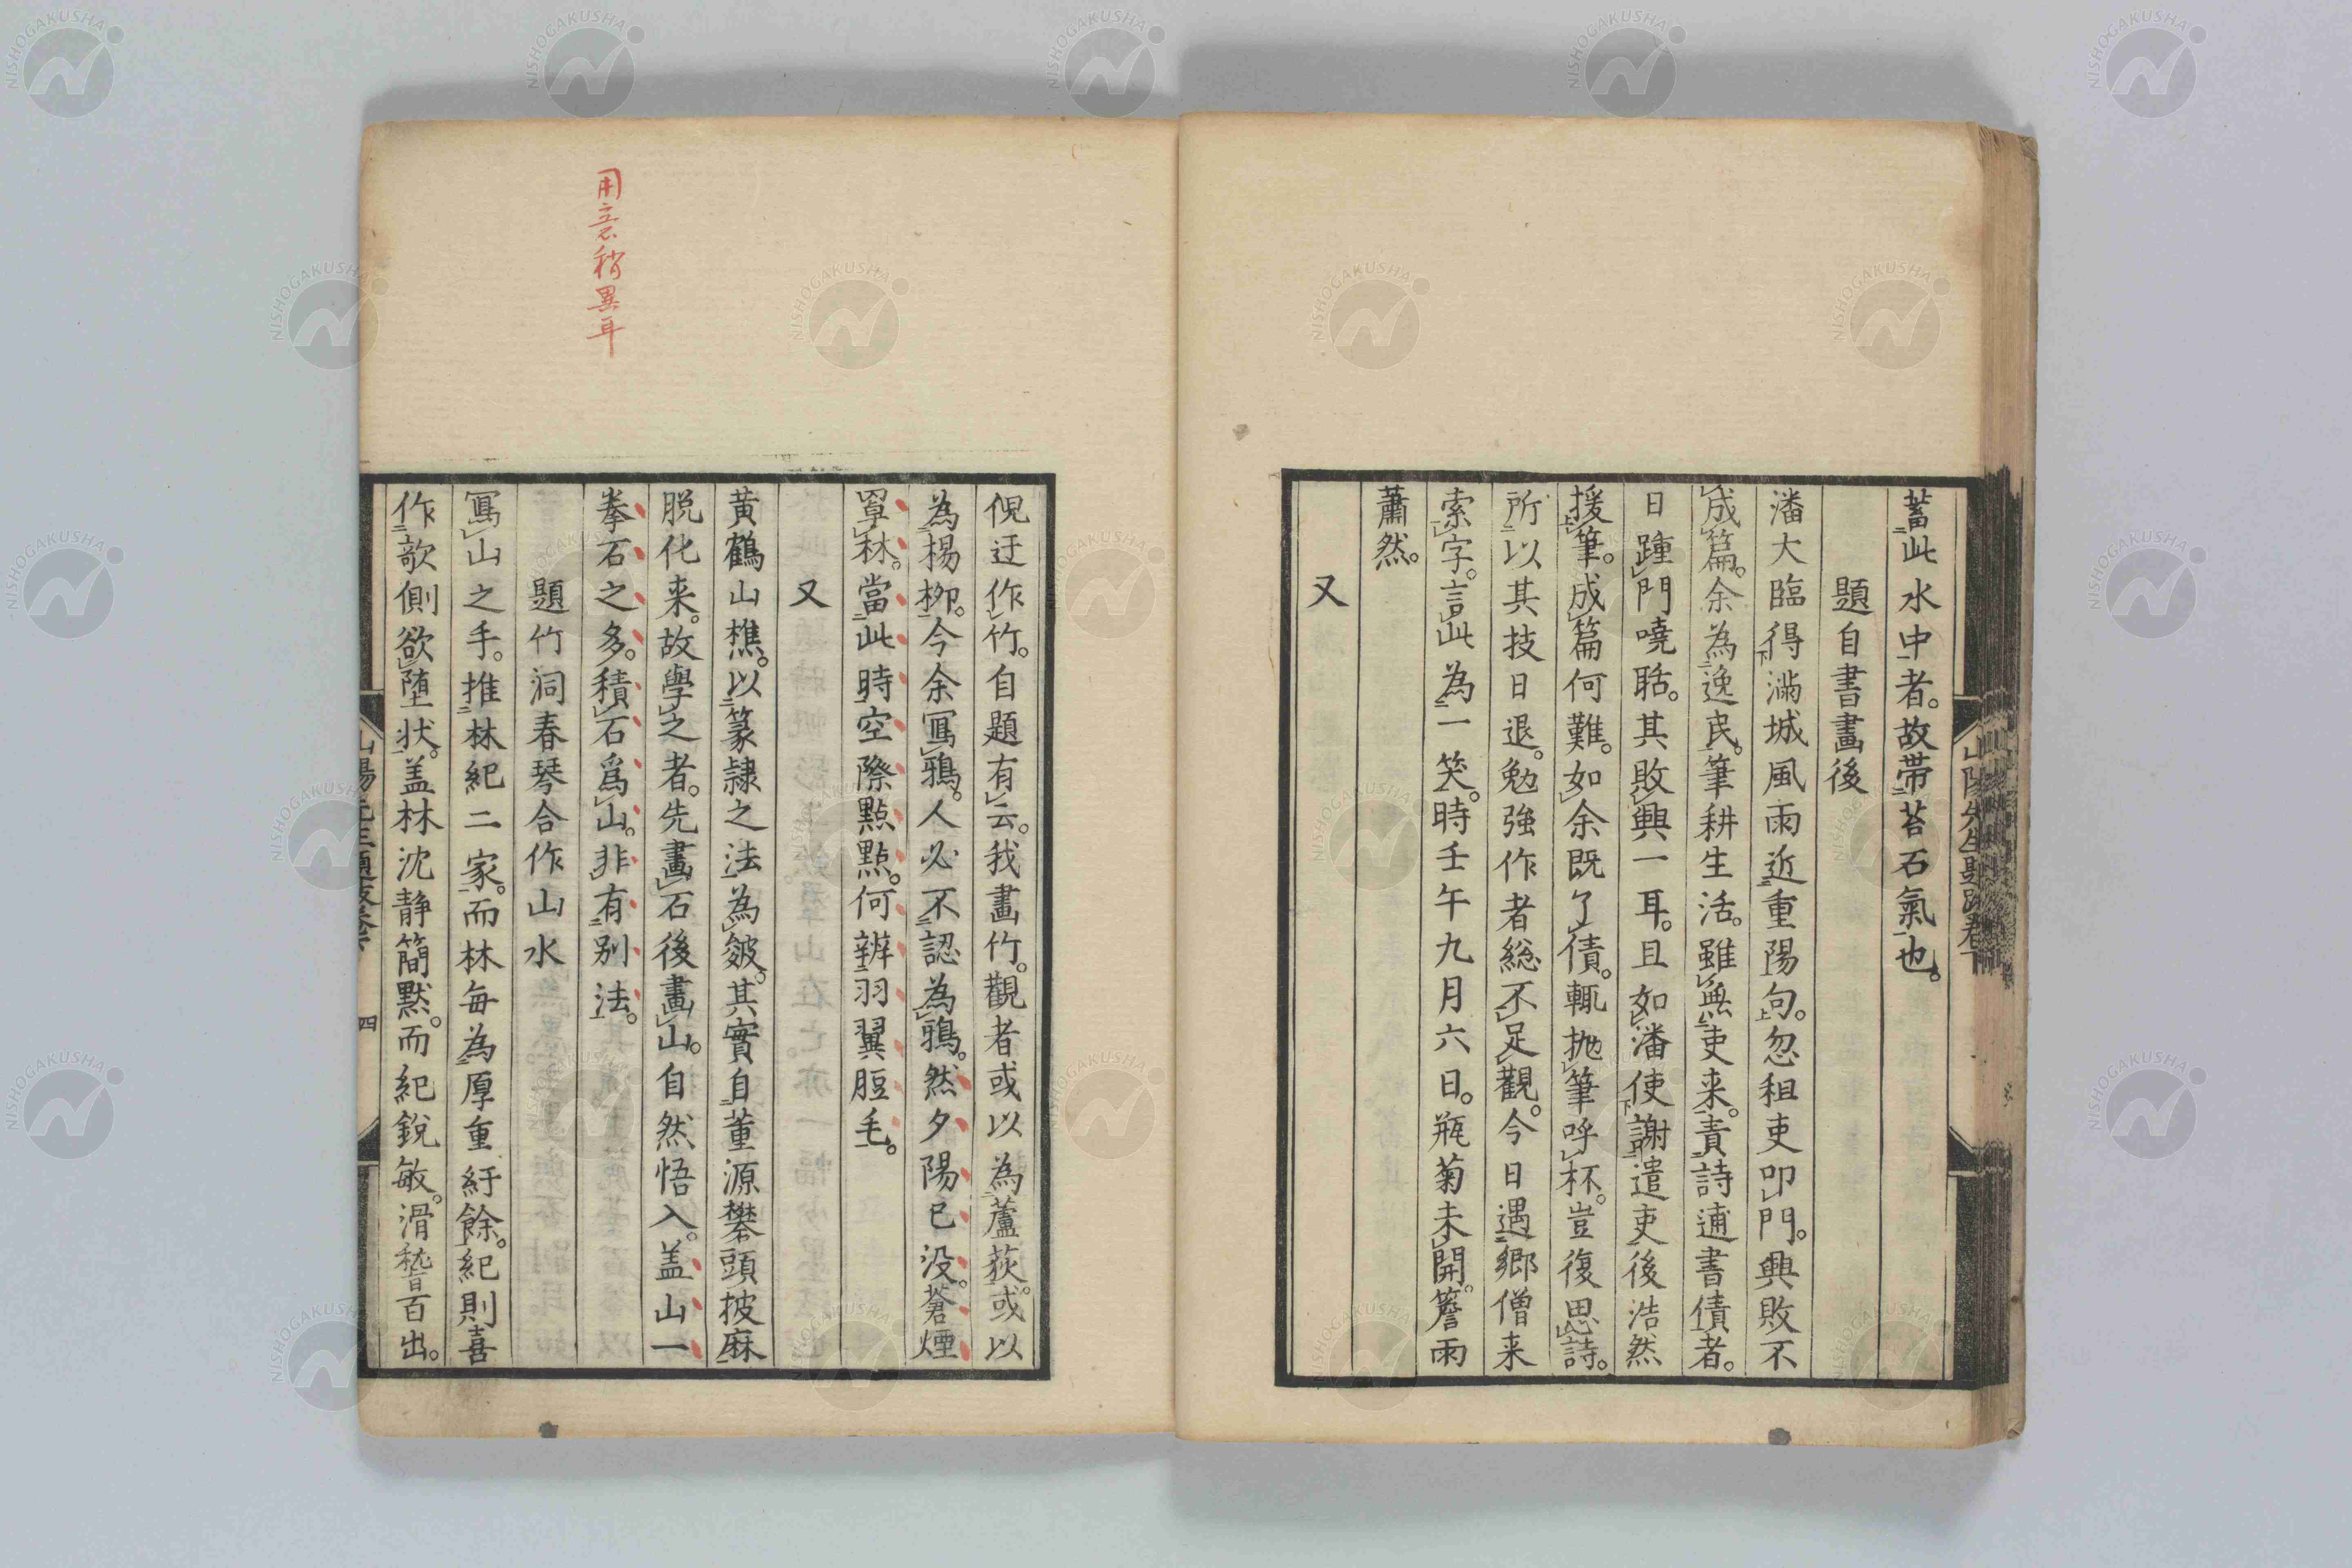 蓄此水中者。故帯苔石氣也。
題自書畫後
潘大臨得滿城風雨近重陽句。忽租吏叩門。興敗不
成篇。余為逸民。筆耕生活。雖無吏来。責詩逋書債者。
日踵門嘵聒。其敗興一耳。且如潘使謝遣吏後浩然
援筆。成篇何難。如余既了債。輒抛筆呼杯。豈復思詩。
所以其技日退。勉強作者総不足觀。今日遇郷僧来
索字。言此為一笑。時壬午九月六日。瓶菊未開。簷雨
蕭然。
又
山陽先生題跋卷下
倪迂作竹。自題有云。我畫竹。觀者或以為蘆荻。或以
為楊柳。今余寫鴉。人必不認為鴉。然夕陽已没。蒼煙
罩林。當此時空際點點。何辨羽翼脰毛。
又
黄鶴山樵。以篆隷之法為皴。其實自董源礬頭披麻
脱化来。故學之者。先畫石後畫山。自然悟入。盖山一
拳石之多。積石爲山。非有別法。
題竹洞春琴合作山水
寫山之手。推林紀二家。而林每為厚重紆餘。紀則喜
作歌側欲堕状。盖林沈静簡黙。而紀鋭敏。滑稽百出。
山陽先生題跋卷下 四
用意稍異耳
NISHOGAKUSHA